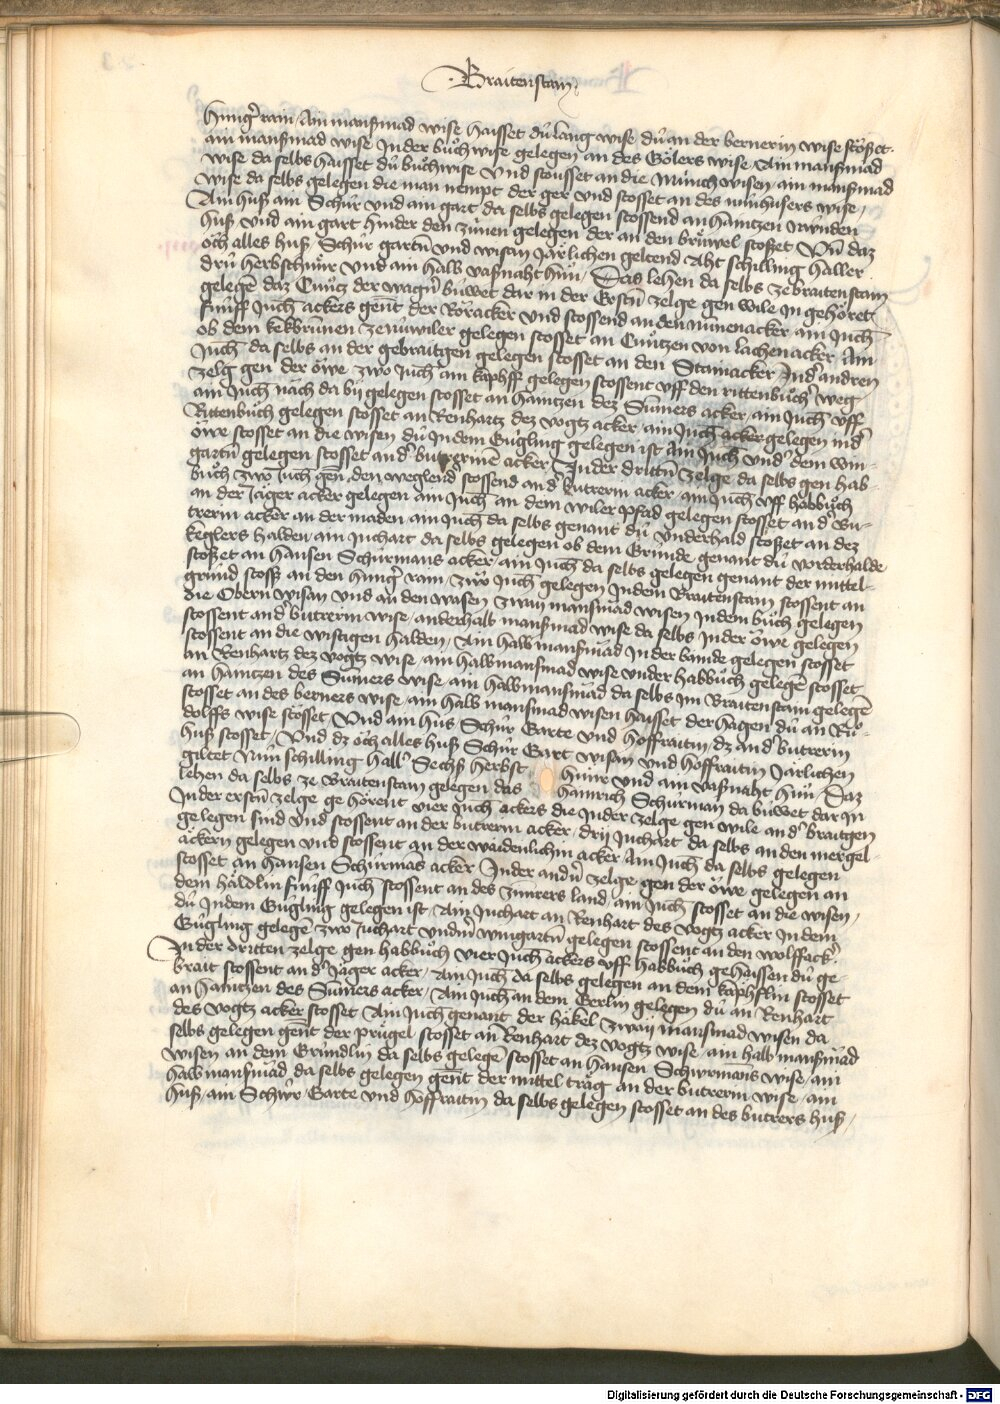 Braitenstain
hungͤr rain / Ain mansmad wise haisset dü lang wise dü an der bernerin wise stösset
ain mansmad wise In der bůchwise gelegen an des Gölers wise / Ain mansmad
wise da selbs haisset dü bůchwise Vnd stosset an die Münch wisen ain mansmad
wise da selbs gelegen die man nempt der ger vnd stosset an des nünhusers wise /
Ain huß ain Schür vnd ain gart da selbs gelegen stossend an haintzen
huß vnd ain gart hinder den zünen gelegen der an den brüwel stosset Vn̄ daz
och alles huß / Schür gartn̄ vnd wisan Järlichen geltend Aht schilling haller
drü herbsthuͤnr vnd ain halb vasnaht hůn / Das lehen da selbs ze braitenstain
gelegē daz Cuͤntz der wagn̄ buwet dar in der Erstn̄ zelge gen wile In gehöret
fünff Juch̄ ackers gen̄t der Röracker vnd stossend an den nunnenacker ain Juch̄
ob dem kekbrunnen ze nüwiler gelegen stosset an Cuͤntzen von lachen acker Ain
Juch̄ da selbs an der gebraitgen gelegen stosset an den Stainacker Ind͛ andren
zelg gen der öwe zwo Juch̄ am kapfff gelegen stossent vff den rittenbuͤch͛ weg
ain Juch̄ nach da bij gelegen stosset an haintzen dez Sumers acker / ain Juch̄ vff
Rittenbuͤch gelegen stosset an Renhartz dez vogtz acker / ain Juch̄ acker gelegen ind͛
öwe stosset an die wisen dü In dem Guͤgling gelegen ist Ain Juch̄ vnd͛ dem win-
gartn̄ gelegen stosset an d͛ acker / In der drittn̄ zelge da selbs gen hab-
buͤch zwo Juch̄ gen̄ den weglend͛ stossend an d͛ butrerin acker / ain Juch̄ vff habbuͤch
an der Jäger acker gelegen ain Juch̄ an dem wiler pfad gelegen stosset an d͛ Bu-
trerin acker an der maden ain Juch̄ da selbs genant dü vnderhald stosset an dez
keglers halden / ain Juchart da selbs gelegen ob dem Grunde genant dü vorderhalde
stosset an hansen Schürmans acker / ain Juch̄ da selbs gelegen genant der mittel-
grund stosst an den hung͛ rain / zwo Juch̄ gelegen In dem Braitenstain stossent an
die Obern wisan vnd an den wasen zwaij mansmad wisen In dem buͤch gelegen
stossent an d͛ butrerin wise / anderhalb mansmad wise da selbs In der öwe gelegen
stossent an die wistigen halden / Ain halb mansmad In der bainde gelegen stosset
an Renhartz dez vogtz wise / ain halb mansmad wise vnder habbuͤch gelegē stosset
an haintzen des Sumers wise / ain halb mansmad da selbs im Braitenstain gelegē
stosset an des berners wise / ain halb mansmad wisen haisset der hagen dü an Ru-
dolffs wise stösset Vnd ain hus Schür Garte vnd hoffraitin / dz an d͛ butrerin
huß stosset / Vnd dz och alles huß Schür Gart wisan vnd hoffraitin Järlichen
giltet Nün schilling hall͛ Sechß herbst hünr vnd ain vasnaht hůn / Daz
lehen da selbs ze Braitenstain gelegen das hainrich Schürman da buwet dar In
In der erstn̄ zelge ge hörent vier Juch̄ ackers die In der zelge gen wile an d͛ braitgen
gelegen sind vnd stossent an der butrerin acker / drij Juchart da selbs an den mergel-
äckern gelegen vnd stossent an der waidenlichin acker Ain Juch̄ da selbs gelegen
stosset an hansen Schürmās acker In der andn̄ zelge gen der öwe gelegen an
dem häldlin fünff Juch̄ stossent an des zimrers land / ain Juch̄ stosset an die wisen /
dü In dem Guͤgling gelegen ist / Ain Juchart an Renhart des vogtz acker In dem
Guͤgling gelegē zwo Juchart vndn̄ wingartn̄ gelegen stossent an den wolffack͛
In der dritten zelge gen habbuͤch vier Juch̄ ackers vff habbuͤch gehaissen dü ge-
brait stossent an d͛ Jäger acker / Ain Juch̄ da selbs gelegen an dem kapfflin stosset
an haintzen des Sumers acker / Ain Juch̄ an dem Gerlin gelegen dü an Renhart
des vogtz acker stosset Ain Juch̄ genant der häkel zwaij mansmad wisen da
selbs gelegen gen̄t der prügel stosset an Renhart dez vogtz wise / ain halb mansmad
wisen an dem Gründlin da selbs gelegē stosset an hansen Schürmans wise / ain
halb mansmad da selbs gelegen gen̄t der mittel trag an der butrerin wise / ain
huß / ain Schür / Garte vnd hoffraitin da selbs gelegen stosset an des butrers huß /
Digitalisierung gefördert durch die Deutsche Forschungsgemeinschaft - DFG